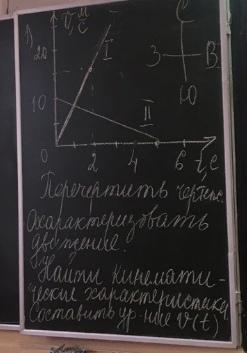 1)
υ, м/с
С
20
I
З
В
Ю
10
II
0
2
4
6
t, с
Перечертить чертеж.
Охарактеризовать
движение.
Найти кинемати-
ческие характеристики
Составить ур-ние υ(t)